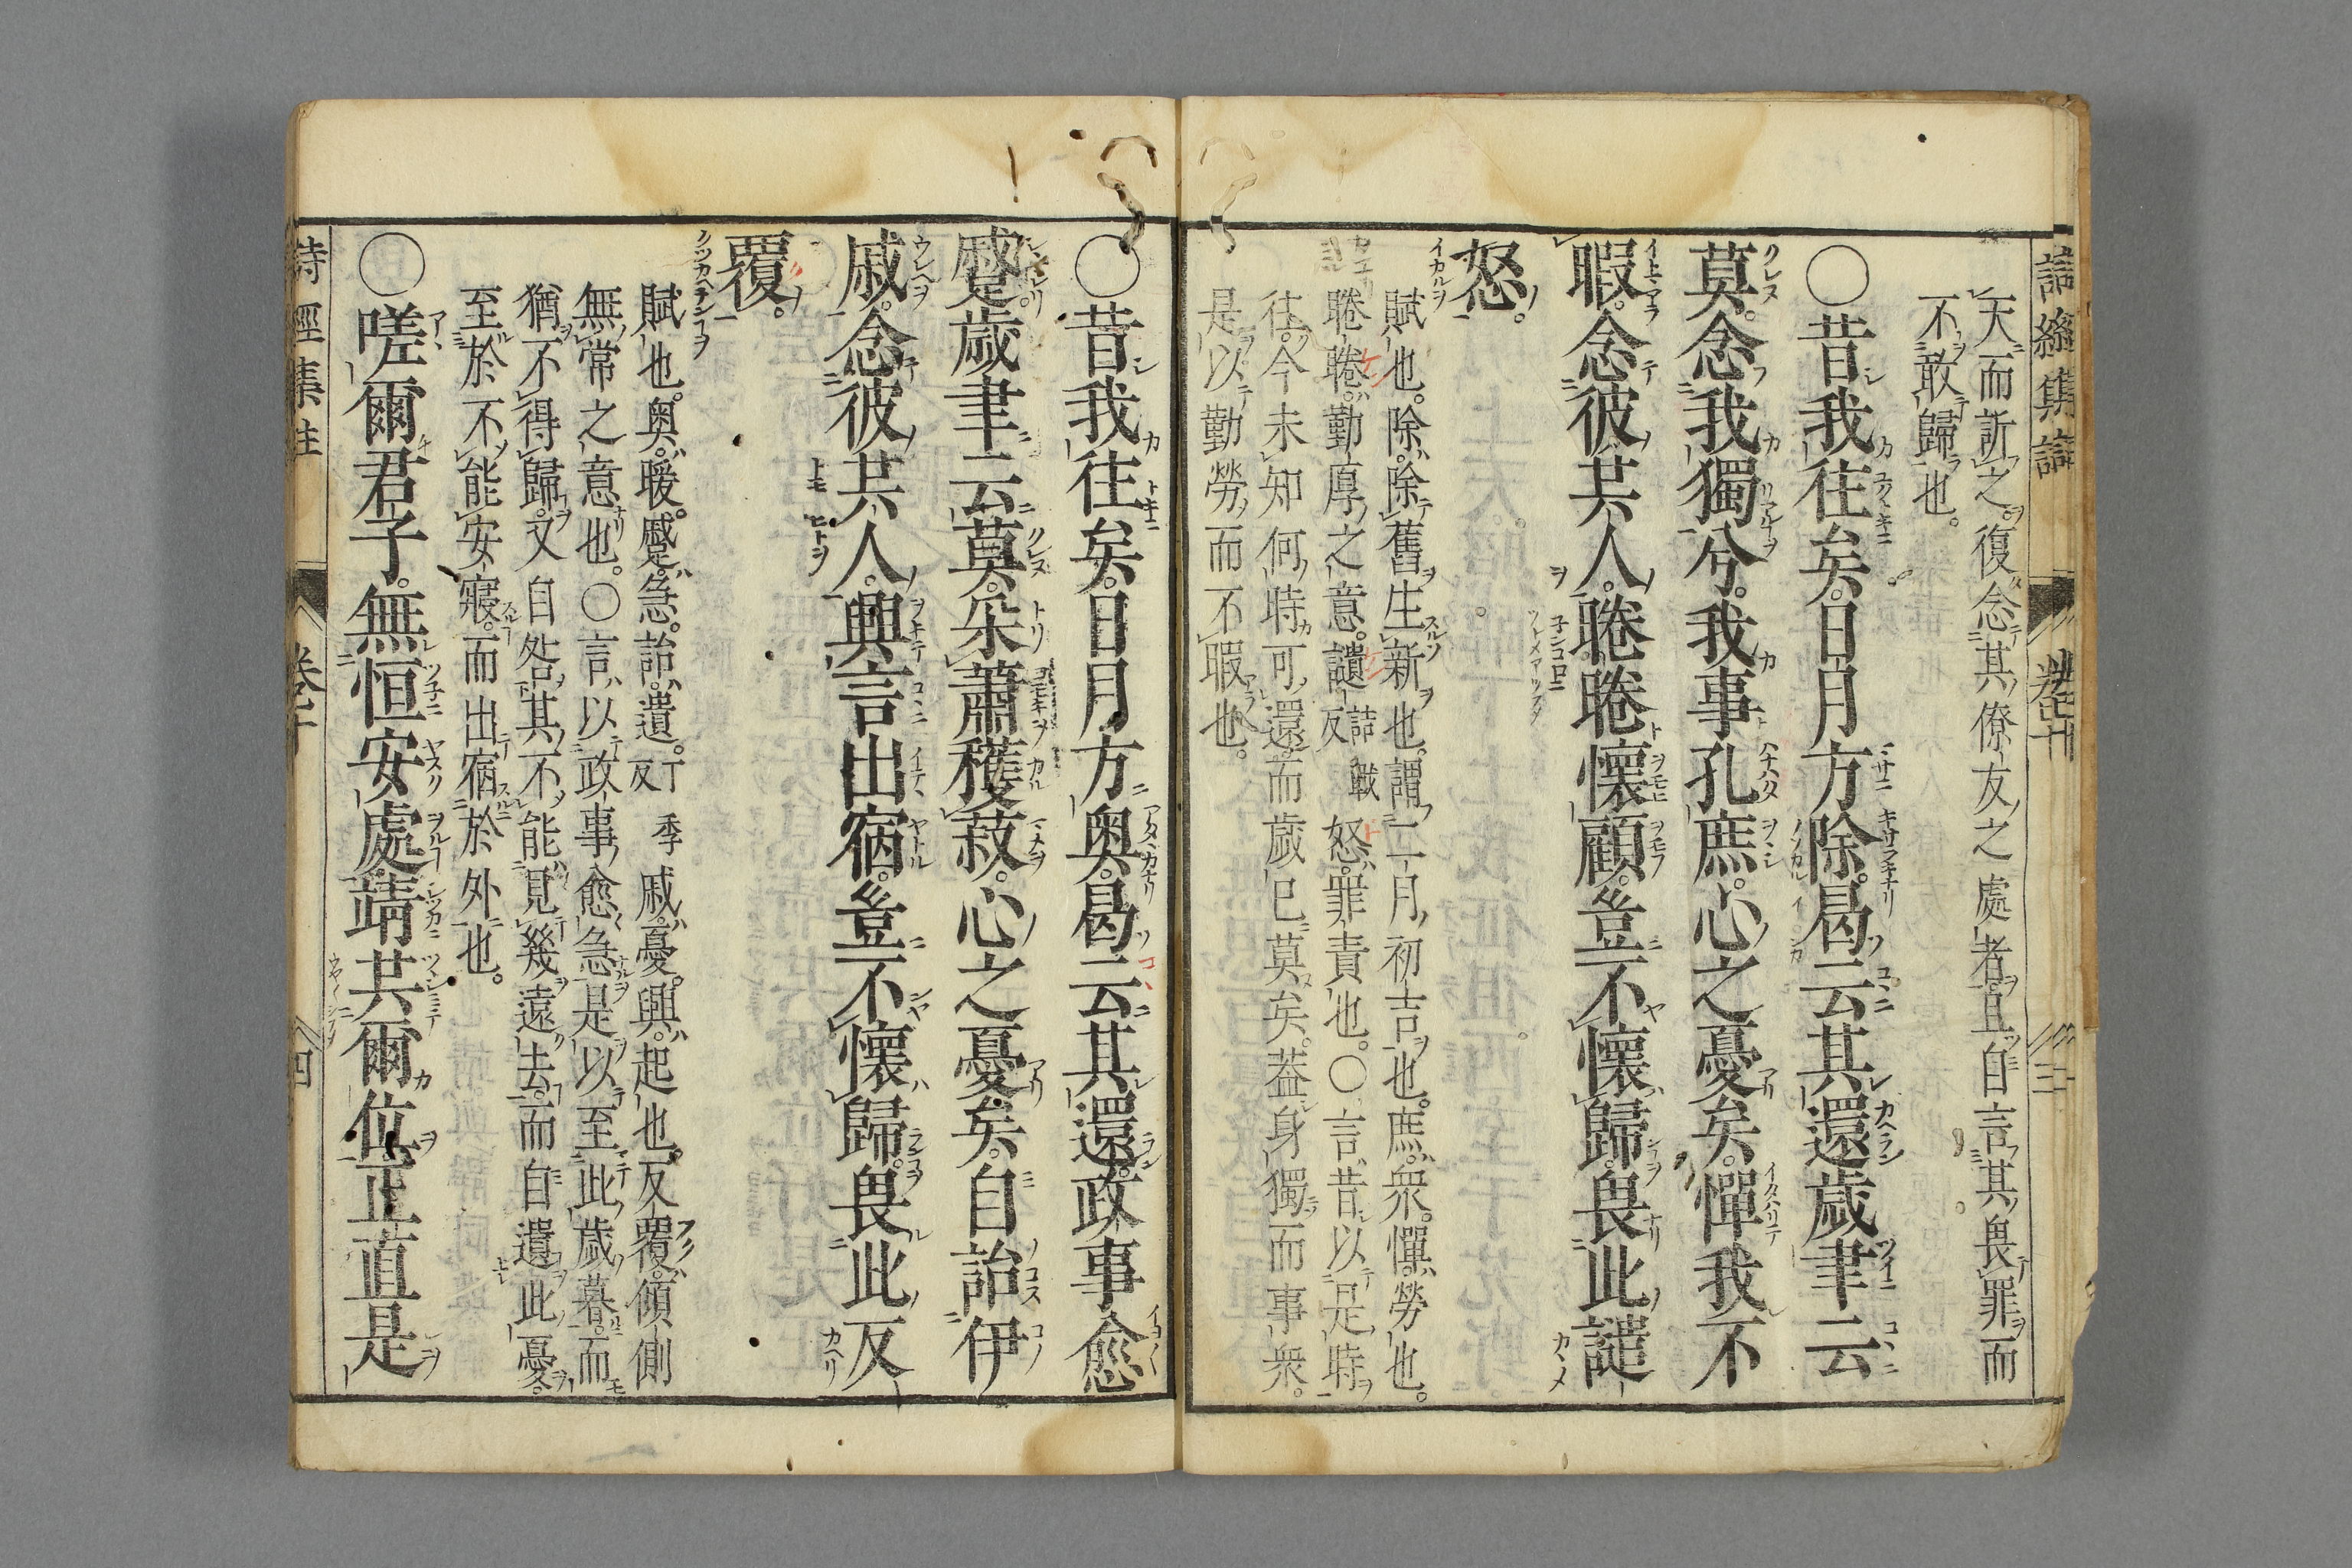 天而訴之。復念其僚友之處者。且自言其畏罪而
不敢歸也。
○昔我往矣。日月方除。曷云其還。歲聿云
莫。念我獨兮。我事孔庶。心之憂矣。憚我不
暇。念彼共人。睠睠懷顧。豈不懷歸。畏此譴
怒。
賦也。除。除舊生新也。謂二月初吉也。庶。衆。憚。勞也。
睠睠。勤厚之意。譴詰戰反怒。罪責也。○言昔以是時
往。今未知何時可還。而歲已莫矣。蓋身獨而事衆。
是以勤勞而不暇也。
○昔我往矣。日月方奧。曷云其還。政事愈
蹙。歲聿云莫。采蕭穫菽。心之憂矣。自詒伊
戚。念彼共人。興言出宿。豈不懷歸。畏此反
覆。
賦也。奧。暖。蹙。急。詒。遺。丁季反戚。憂。興。起也。反覆。傾側
無常之意也。○言以政事愈急。是以至此歲暮。而
猶不得歸。又自咎其不能見幾遠去。而自遺此憂。
至於不能安寢。而出宿於外也。
○嗟爾君子。無恒安處。靖共爾位。正直是
詩經集註
卷十
四